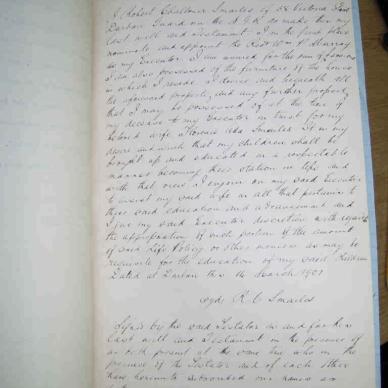 I Robert Challoner Smailes of 58 Victoria
Durban Guard on the N.G.R. do make this my
last will and Testament. I in the first place
nominate and appoint the Revd Wm P. Murray
as my Executor. I am insured for the sum of
I am also possessed of the furniture of the house
in which I reside. I leave and bequeath all
the aforesaid property and any further property
that I may be possessed of at the time of
my decease to my Executor in trust for my
beloved wife Florence Ada Smailes. It is my
desire and wish that my children shall be
brought up and educated in a respectable
manner becoming their station in life and
with that view I enjoin on my said Executor
to assist my said wife in all that pertains to
their said education and advancement and
I give my said Executor discretion with regard to
the appropriation of such portion of the amount
of said Life Policy or other monies as may be
requisite for the education of my said children
Dated at Durban this 14 March 1901
sgd R. C Smailes
Signed by the said Testator as and for his
last will and Testament in the presence of
us both present at the same time who in the
presence of the Testator and of each other
have hereunto subscribed our names as